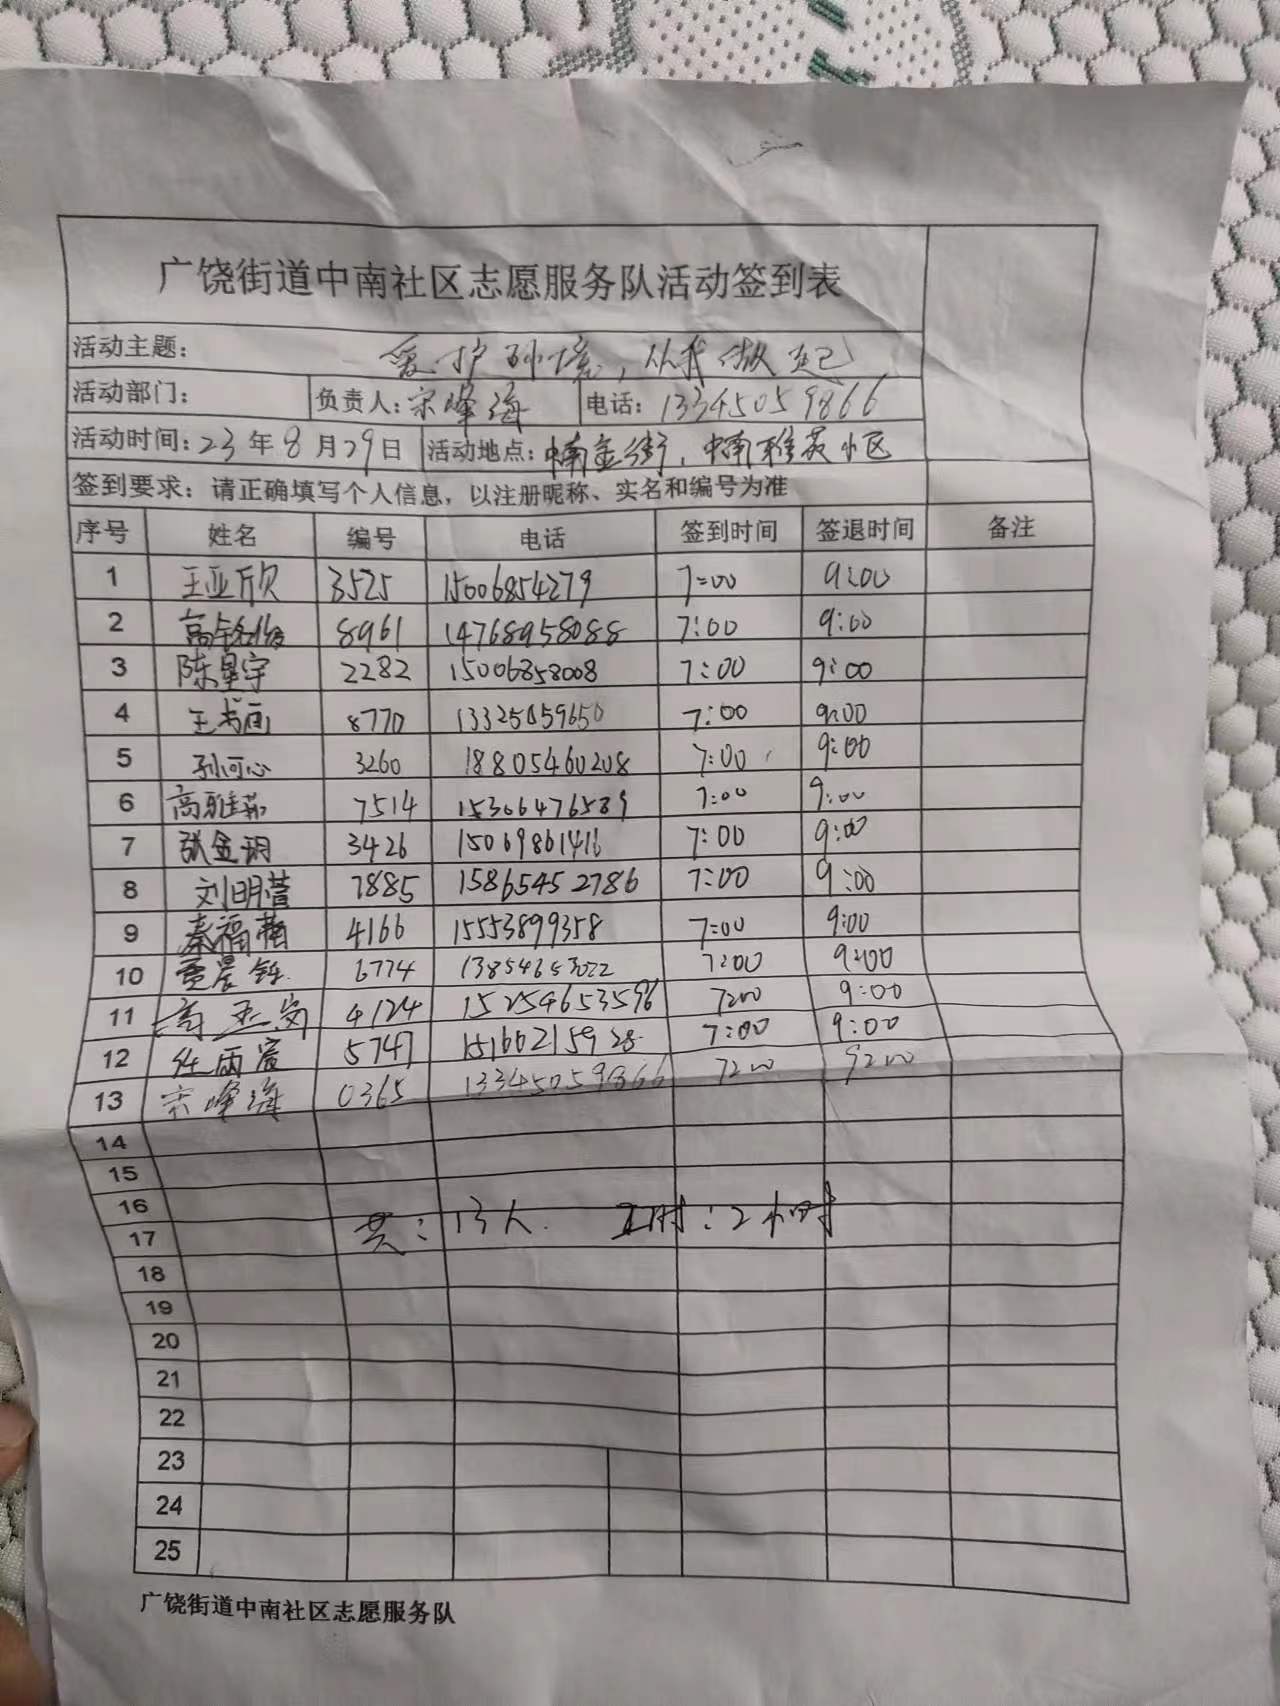 广饶街道中南社区志愿服务队活动签到表
活动主题: 爱护环境，从我做起
活动部门: 负责人: 宋峰海 电话: 13345059866
活动时间: 23年8月29日 活动地点: 中南金街，中南雅苑小区
签到要求: 请正确填写个人信息，以注册昵称、实名和编号为准
序号 姓名 编号 电话 签到时间 签退时间 备注
1 王亚欣 3525 15006854279 7:00 9:00
2 高 8961 14768958088 7:00 9:00
3 陈星宇 2282 15006858008 7:00 9:00
4 王书画 8770 13325059650 7:00 9:00
5 孙可心 3260 18805460208 7:00 9:00
6 高雅 7514 15306476589 7:00 9:00
7 张金玥 3426 15069861416 7:00 9:00
8 刘明萱 7885 15865452786 7:00 9:00
9 秦福 4166 15553899358 7:00 9:00
10 贾晨 6774 13854653022 7:00 9:00
11 高 4124 15254653596 7:00 9:00
12 任雨宸 5747 15166215928 7:00 9:00
13 宋峰海 0365 13345059866 7:00 9:00
14
15
16
共: 13人. 工时: 2小时
17
18
19
20
21
22
23
24
25
广饶街道中南社区志愿服务队